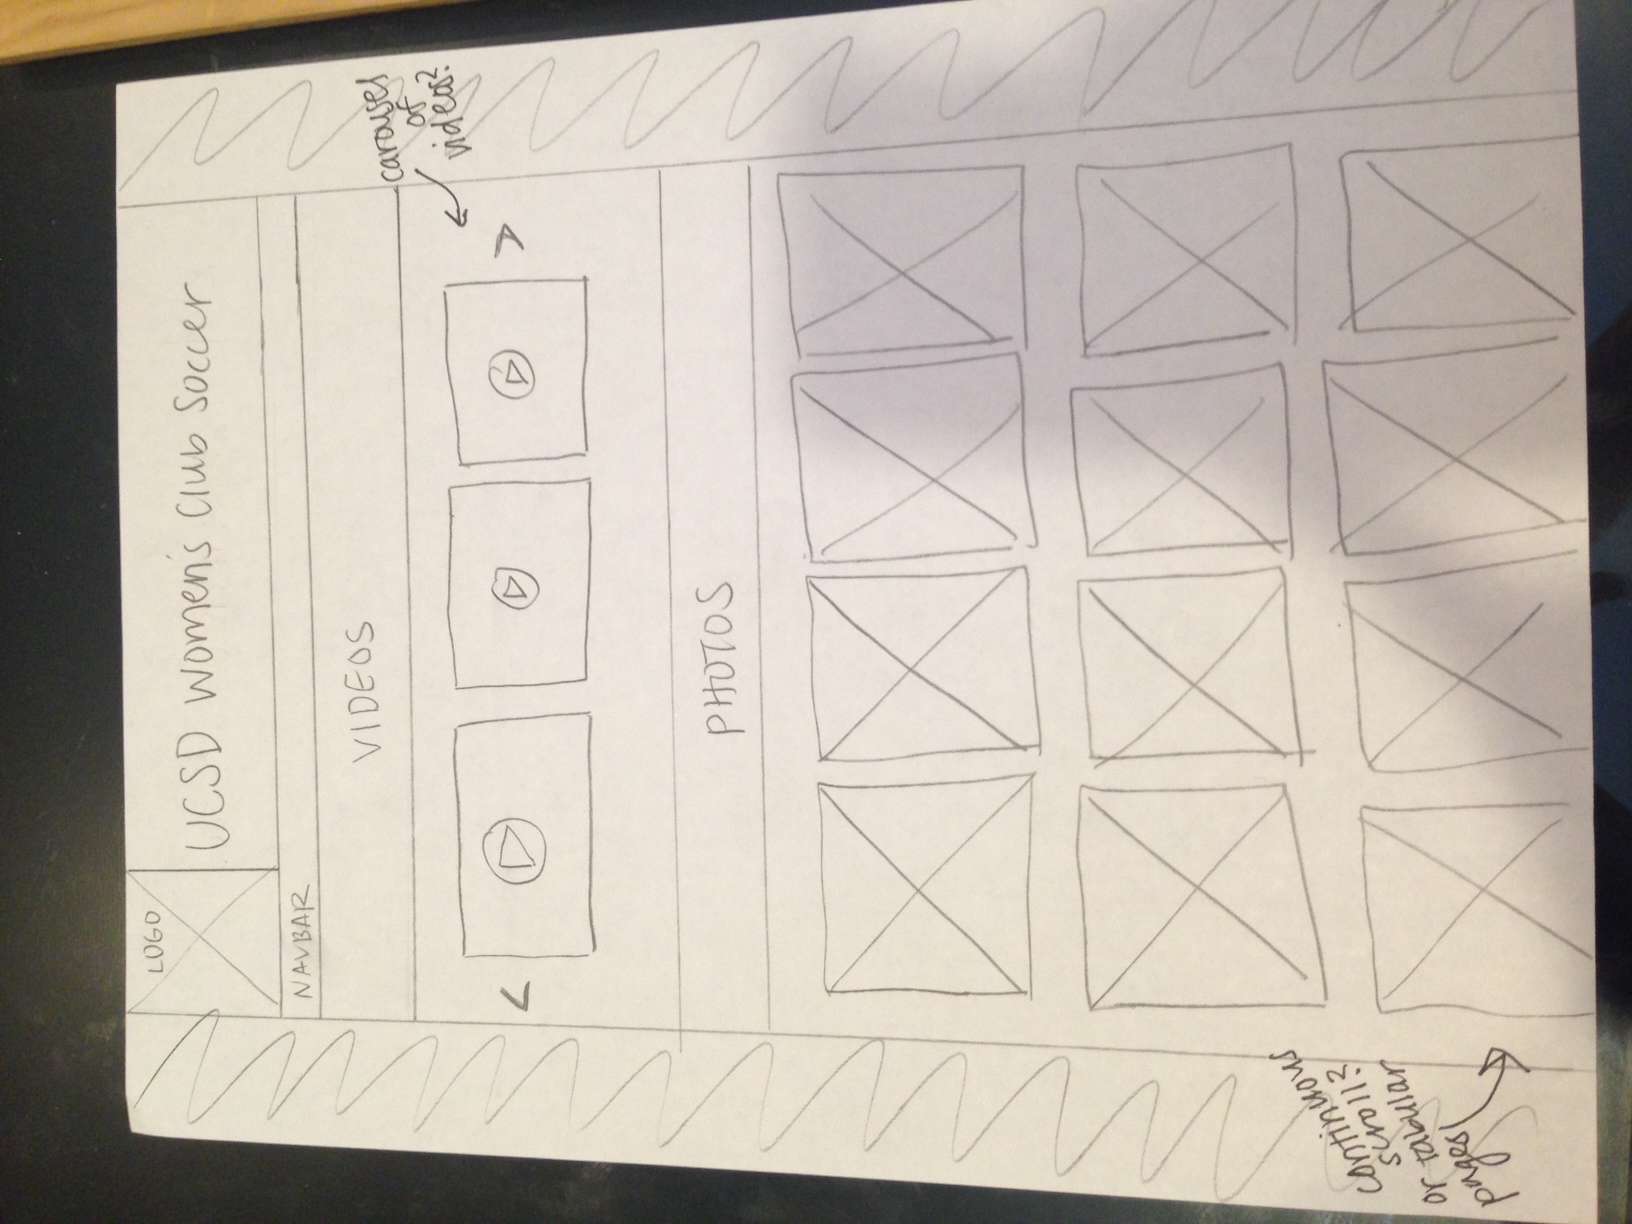 LOGO
UCSD Women's Club Soccer
NAVBAR
VIDEOS
carousel
of
videos?
PHOTOS
continuous
scroll?
or tabular
pages